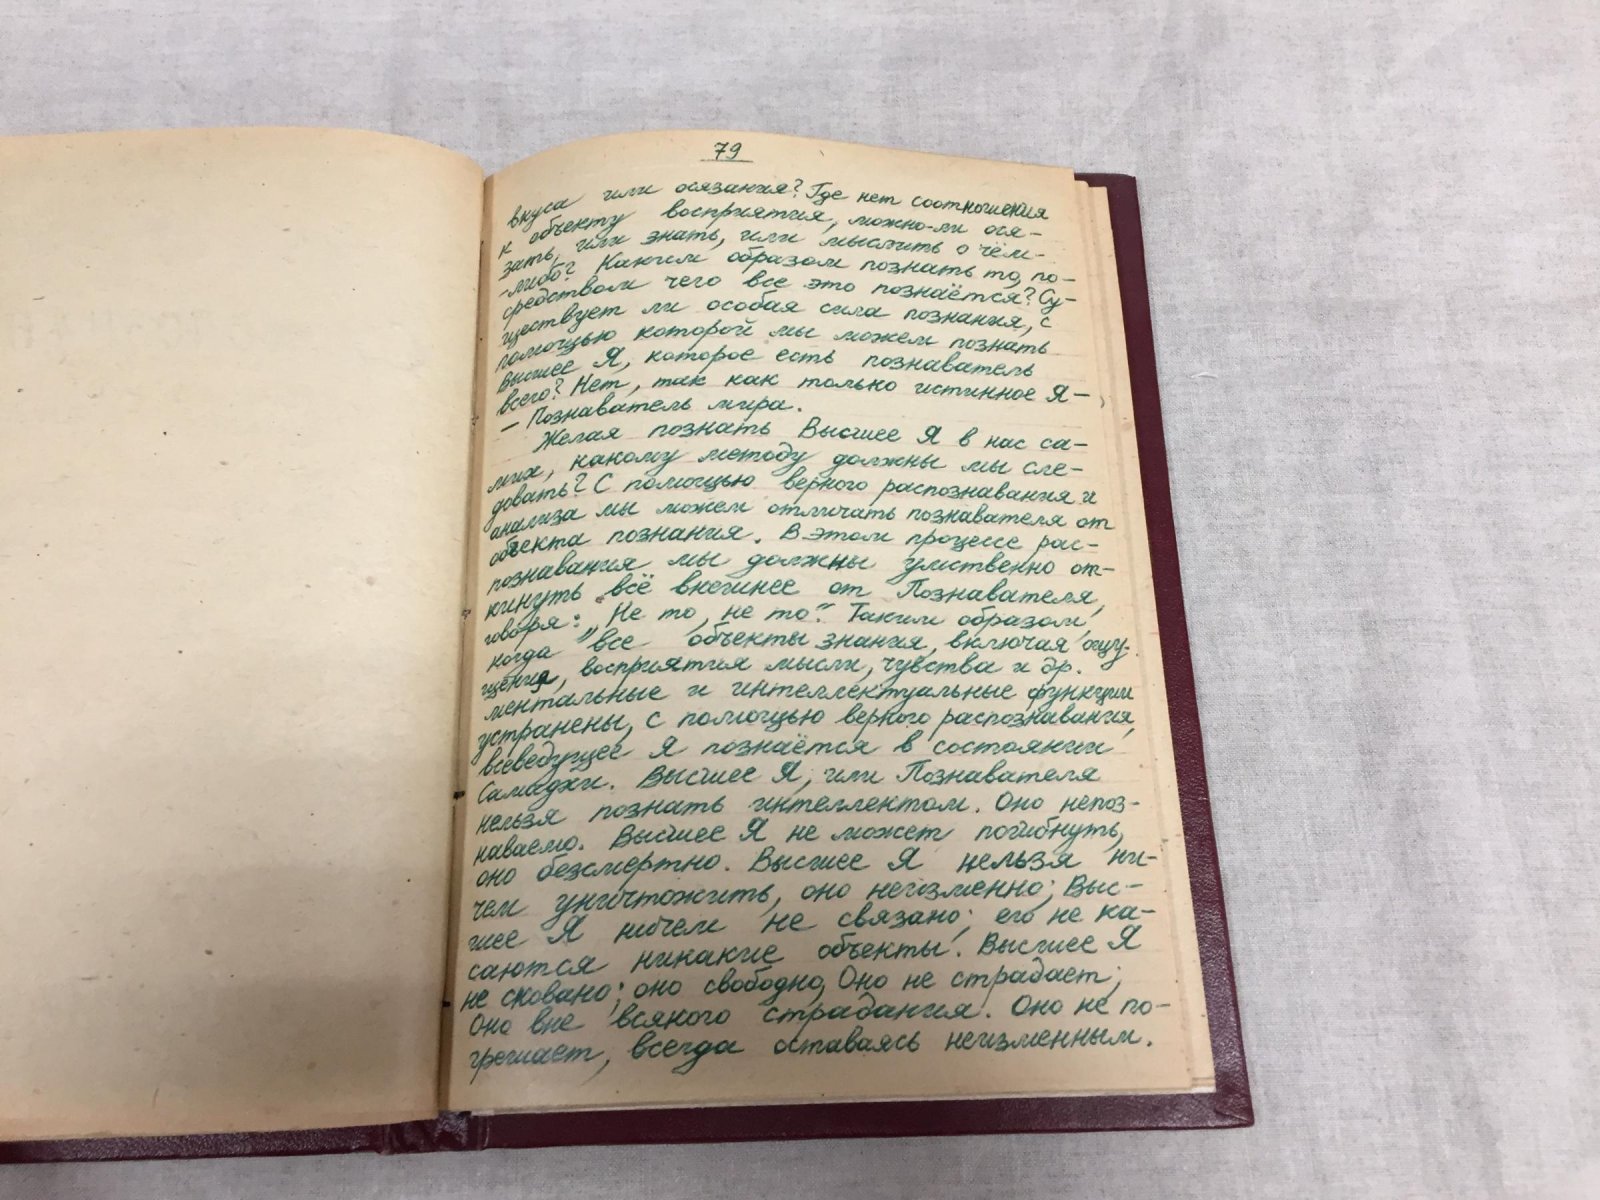 79
вкуса или осязания? Где нет соотношения
к объекту восприятия, можно-ли ося-
зать, или знать, или мыслить о чём-
-либо? Каким образом познать то, по-
средством чего все это познаётся? Су-
ществует ли особая сила познания, с
помощью которой мы можем познать
Высшее Я, которое есть познаватель
всего? Нет, так как только истинное Я-
- Познаватель мира.
Желая познать Высшее Я в нас са-
мих, какому методу должны мы сле-
довать? С помощью верного распознавания и
анализа мы можем отличать познавателя от
объекта познания. В этом процессе рас-
познавания мы должны умственно от-
кинуть всё внешнее от Познавателя,
говоря: „Не то, не то". Таким образом,
когда все объекты знания, включая ощу-
щения, восприятия мысли, чувства и др.
ментальные и интеллектуальные функции
устранены, с помощью верного распознавания,
всеведущее Я познаётся в состоянии
Самадхи. Высшее Я, или Познавателя
нельзя познать интеллектом. Оно непоз-
наваемо. Высшее Я не может погибнуть,
оно безсмертно. Высшее Я нельзя ни-
чем уничтожить, оно неизменно; Выс-
шее Я ничем не связано; его не ка-
саются никакие объекты. Высшее Я
не сковано; оно свободно, Оно не страдает;
Оно вне всякого страдания. Оно не по-
грешает, всегда оставаясь неизменным.